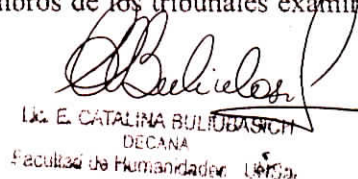 mbros de los tribunales exami
Lic. E. CATALINA BULIUBASICH
DECANA
Facultad de Humanidades UNSa.